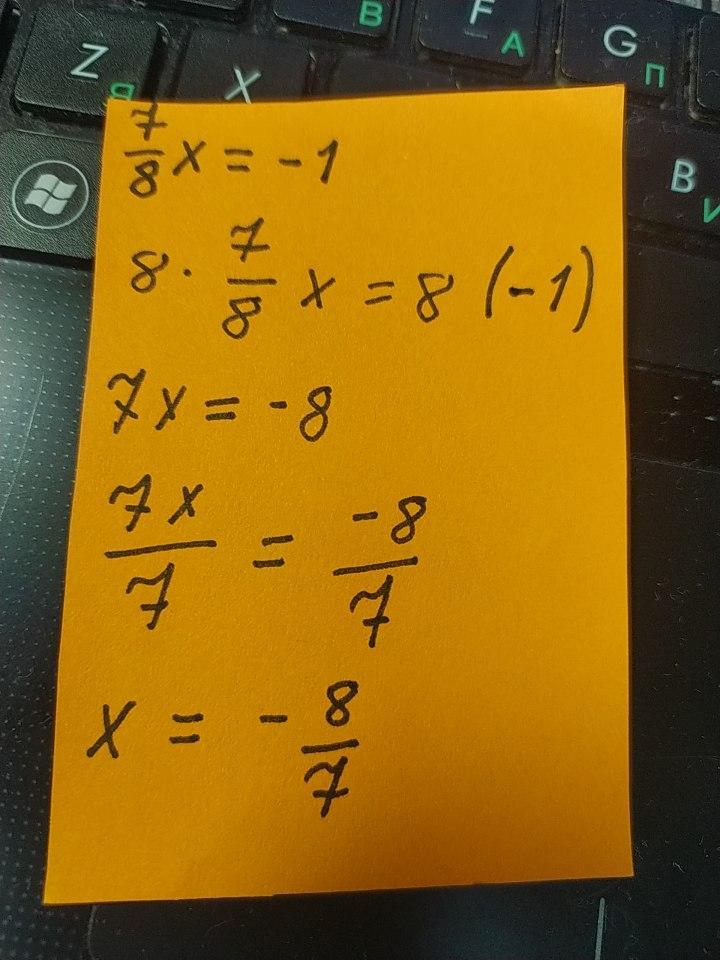 В
F
А
G
П
Z
Я
X
B
И
7/8 x = -1
8 · 7/8 x = 8 (-1)
7x = -8
7x/7 = -8/7
x = - 8/7